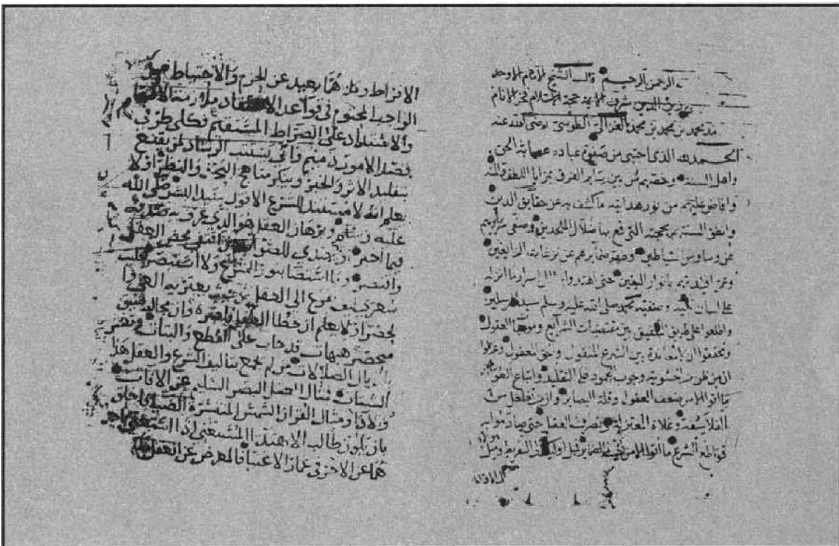 الرحمن الرحيم قال الشيخ الامام الاوحد
زين الدين شرف الايمة حجة الاسلام فخر الانام
محمد بن محمد بن محمد الغزالي الطوسي رضي الله عنه
الحمد لله الذي اجتبى من صفوة عباده عصابة الحق
واهل السنة وخصهم من بين ساير الفرق بمزايا اللطف والمنة
وافاض عليهم من نور هدايته ما كشف به عن حقايق الدين
وانطق السنتهم بحجته التي قمع بها ضلال الملحدين وصفى سرايرهم
من وساوس الشياطين وطهر ضمايرهم عن نزغات الزايغين
وعمر افيدتهم بانوار اليقين حتى اهتدوا الى اسرار ما انزله
على لسان نبيه وصفيه محمد صلى الله عليه وسلم سيد المرسلين
واطلعوا على طريق التلفيق بين مقتضيات الشرايع وموجبات العقول
وتحققوا ان لا معاندة بين الشرع المنقول وحق المعقول وعرفوا
ان من ظن من الحشوية وجوب الجمود على التقليد واتباع الظواهر
ما اتوا به الا من ضعف العقول وقلة البصاير وان من تغلغل من
الفلاسفة وغلاة المعتزلة في تصرف العقل حتى صادموا به
قواطع الشرع ما اتوا به الا من خبث الضماير فميل اوليك الى التفريط وميل
هولاء الى
الافراط وكلاهما بعيد عن الحزم والاحتياط بل
الواجب المحتوم في قواعد الاعتقاد ملازمة الاقتصاد
والاستداد على الصراط المستقيم فكلى طرفي
قصد الامور ذميم وانى يستتب الرشاد لمن يقنع
بتقليد الاثر والخبر وينكر مناهج البحث والنظر او لا
يعلم انه لا مستند للشرع الا قول سيد البشر صلى الله
عليه وسلم وبرهان العقل هو الذي عرف به صدقه
فيما اخبر وكيف يهتدي للصواب من اقتفى محض العقل
واقتصر وما استضا بنور الشرع ولا استبصر فليت
شعري كيف يفزع الى العقل من حيث يعتريه العي
والحصر او لا يعلم ان خطا العقل قاصر وان مجاله ضيق
منحصر هيهات قد خاب على القطع والبتات وتعثر
باذيال الضلالات من لم يجمع بتاليف الشرع والعقل هذا
الشتات فمثال العقل البصر السليم عن الافات
والاذا ومثال القران الشمس المنتشرة الضيا فاخلق
بان يكون طالب الاهتدا المستغني اذا استغنى
باحدهما عن الاخر في غمار الاغبيا فالمعرض عن العقل